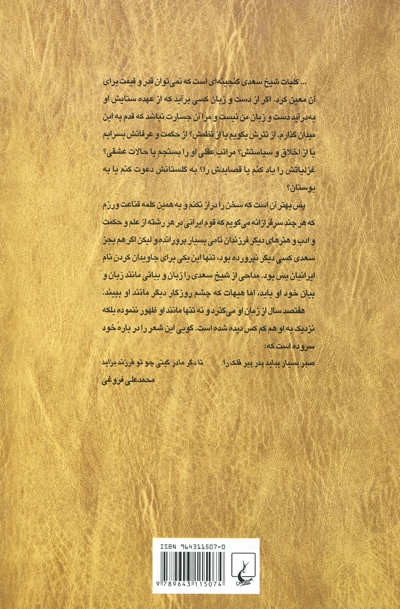 ... کلیات شیخ سعدی گنجینه‌ای است که نمی‌توان قدر و قیمت برای
آن معین کرد. اگر از دست و زبان کسی برآید که از عهده ستایش او
به‌درآید دست و زبان من نیست و مرا آن جسارت نباشد که قدم به این
میدان گذارم. از نثرش بگویم یا از نظمش؟ از حکمت و عرفانش بسرایم
یا از اخلاق و سیاستش؟ مراتب عقلی او را بسنجم یا حالات عشقی؟
غزلیاتش را یاد کنم یا قصایدش را؟ به گلستانش دعوت کنم یا به
بوستان؟
پس بهتر آن است که سخن را دراز نکنم و به همین کلمه قناعت ورزم
که هر چند سرفرازانه می‌گویم که قوم ایرانی در هر رشته از علم و حکمت
و ادب و هنرهای دیگر فرزندان نامی بسیار پرورانده و لیکن اگر هم بجز
سعدی کسی دیگر نپرورده بود، تنها این یکی برای جاویدان کردن نام
ایرانیان بس بود. مداحی از شیخ سعدی را زبان و بیانی مانند زبان و
بیان خود او باید، اما هیهات که چشم روزگار دیگر مانند او ببیند.
هفتصد سال از زمان او می‌گذرد و نه تنها مانند او ظهور ننموده بلکه
نزدیک به او هم کم کس دیده شده است. گویی این شعر را در باره خود
سروده است که:
صبر بسیار بباید پدر پیر فلک را تا دگر مادر گیتی چو تو فرزند بزاید
محمدعلی فروغی
ISBN 964311507-0
9 789643 115074